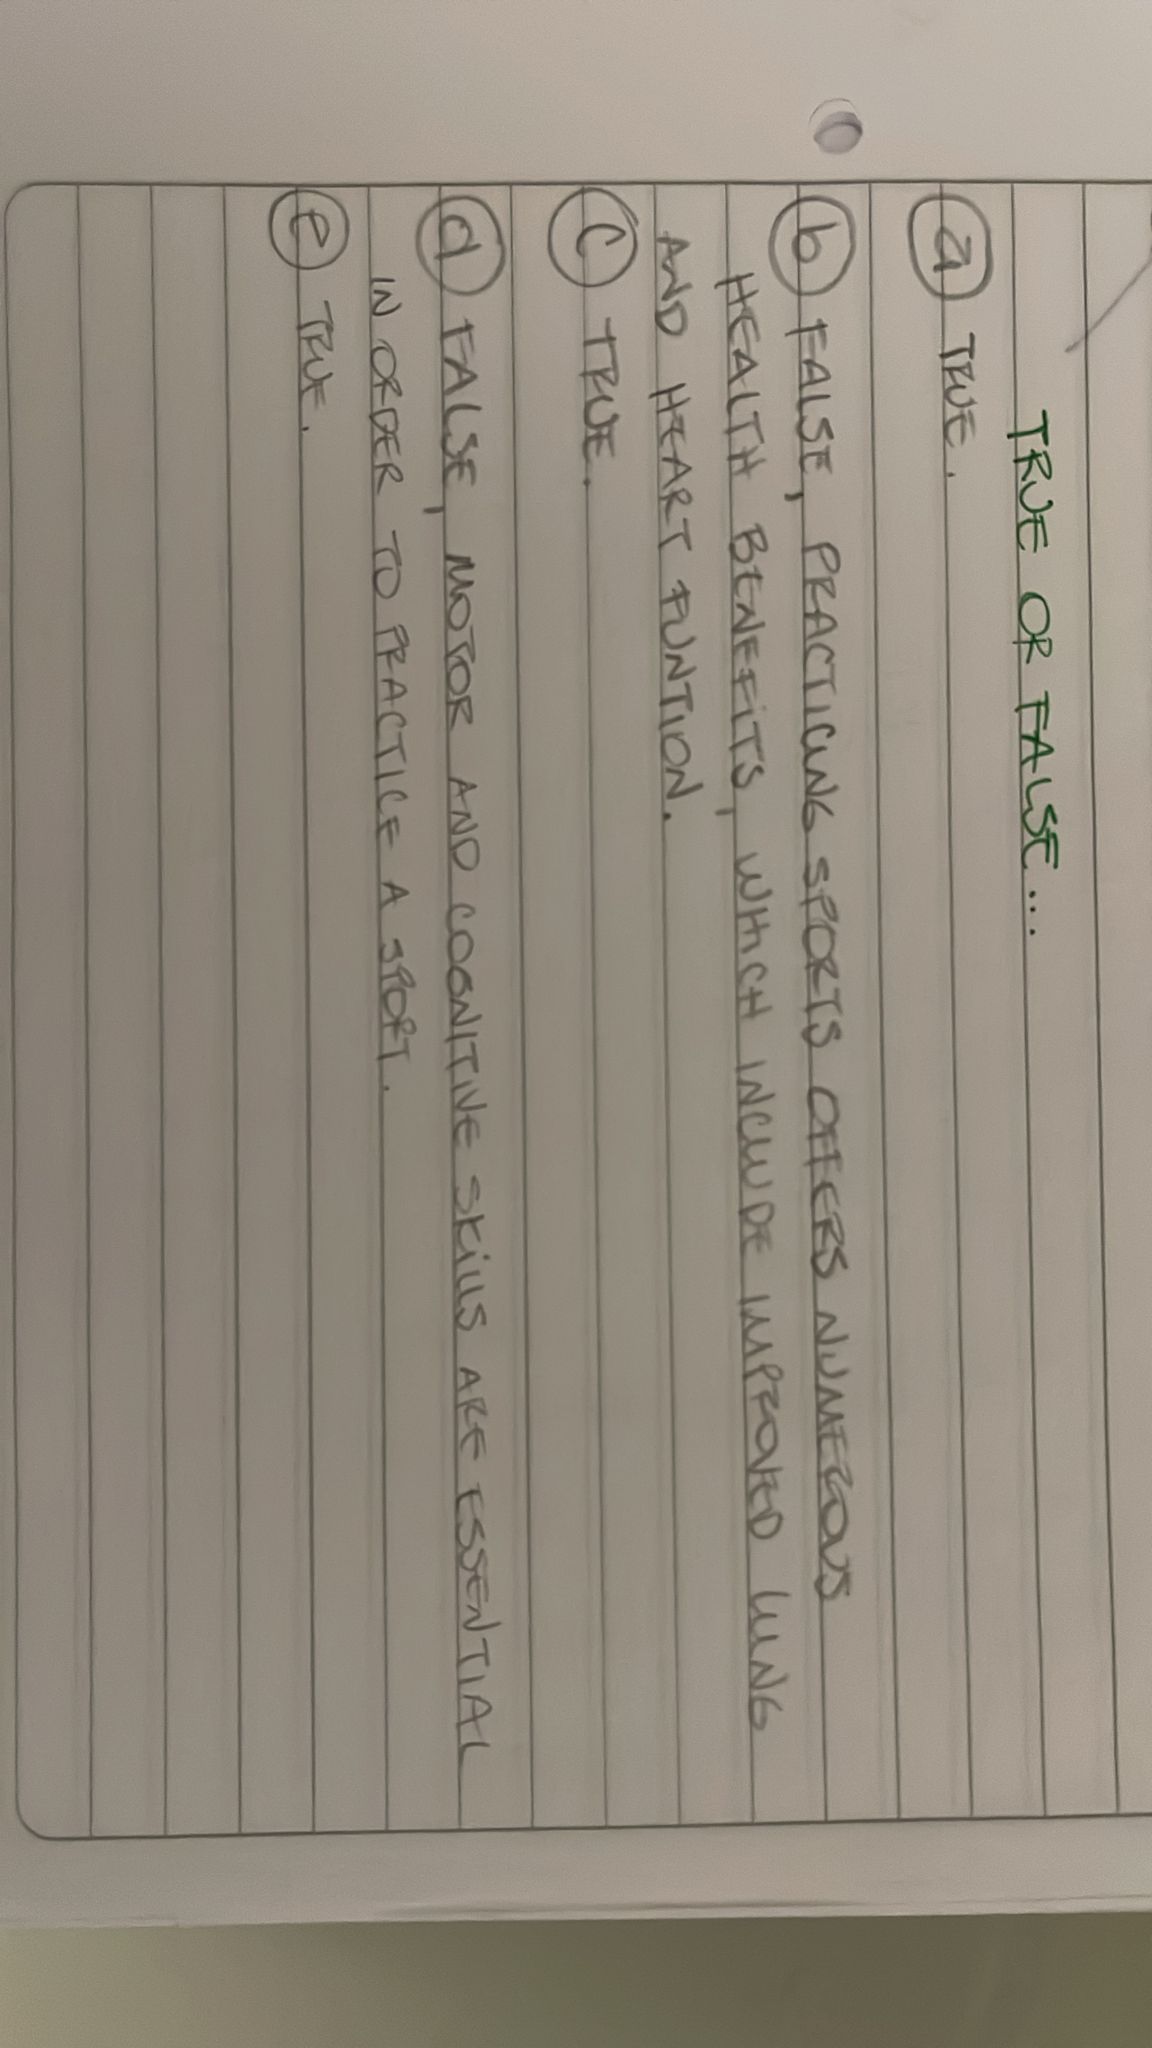 TRUE OR FALSE...
a TRUE.
b FALSE, PRACTICING SPORTS OFFERS NUMEROUS
HEALTH BENEFITS, WHICH INCLUDE IMPROVED LUNG
AND HEART FUNTION.
c TRUE.
d FALSE, MOTOR AND COGNITIVE SKILLS ARE ESSENTIAL
IN ORDER TO PRACTICE A SPORT.
e TRUE.